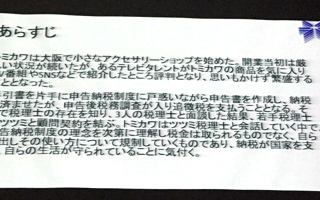 あらすじ
トミカワは大阪で小さなアクセサリーショップを始めた。開業当初は厳
い状況が続いたが、あるテレビタレントがトミカワの商品を気に入り
V番組やSNSなどで紹介したところ評判となり、思いもかけず繁盛する
ととなった。
手引書を片手に申告納税制度に戸惑いながら申告書を作成し、納税
済ませたが、申告後税務調査が入り追徴税を支払うこととなる。そ
で税理士の存在を知り、3人の税理士と面談した結果、若手税理士
ツツミと顧問契約を結ぶ。トミカワはツツミ税理士と会話していく中で
告納税制度の理念を次第に理解し税金は取られるものでなく、自ら
出しその使い方について規制していくものであり、納税が国家を支
、自らの生活が守られていることに気付く。